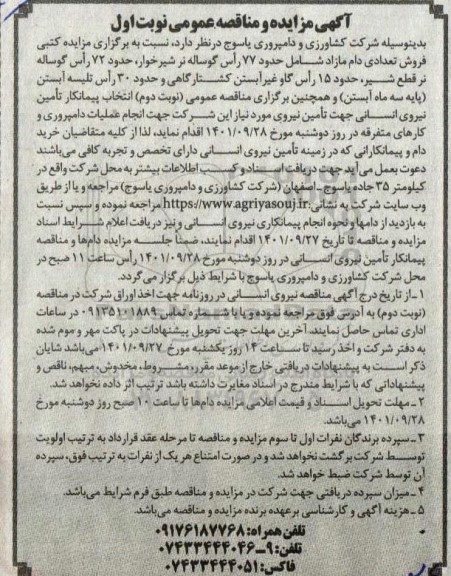 آگهی مزایده و مناقصه عمومی نوبت اول
بدینوسیله شرکت کشاورزی و دامپروری یاسوج درنظر دارد، نسبت به برگزاری مزایده کتبی
فروش تعدادی دام مازاد شامل حدود ۷۷ رأس گوساله نر شیرخوار، حدود ۷۲ رأس گوساله
نر قطع شیر، حدود ۱۵ رأس گاو غیرآبستن کشتارگاهی و حدود ۳۰ رأس تلیسه آبستن
(پایه سه ماه آبستن) و همچنین برگزاری مناقصه عمومی (نوبت دوم) انتخاب پیمانکار تأمین
نیروی انسانی جهت تأمین نیروی مورد نیاز این شرکت جهت انجام عملیات دامپروری و
کارهای متفرقه در روز دوشنبه مورخ ۱۴۰۱/۰۹/۲۸ اقدام نماید، لذا از کلیه متقاضیان خرید
دام و پیمانکارانی که در زمینه تأمین نیروی انسانی دارای تخصص و تجربه کافی می‌باشند
دعوت بعمل می‌آید جهت دریافت اسناد و کسب اطلاعات بیشتر به محل شرکت واقع در
کیلومتر ۳۵ جاده یاسوج ـ اصفهان (شرکت کشاورزی و دامپروری یاسوج) مراجعه و یا از طریق
وب سایت شرکت به نشانی: https://www.agriyasouj.ir مراجعه نموده و سپس نسبت
به بازدید از دامها و نحوه انجام پیمانکاری نیروی انسانی و نیز دریافت اعلام شرایط اسناد
مزایده و مناقصه تا تاریخ ۱۴۰۱/۰۹/۲۷ اقدام نمایند، ضمناً جلسه مزایده دام‌ها و مناقصه
پیمانکار تأمین نیروی انسانی در روز دوشنبه مورخ ۱۴۰۱/۰۹/۲۸ رأس ساعت ۱۱ صبح در
محل شرکت کشاورزی و دامپروری یاسوج با شرایط ذیل برگزار می‌گردد.
۱ـ از تاریخ درج آگهی مناقصه نیروی انسانی در روزنامه جهت اخذ اوراق شرکت در مناقصه
(نوبت دوم) به آدرس فوق مراجعه نموده و یا با شماره تماس ۰۹۱۳۵۱۰۱۸۸۹ در ساعات
اداری تماس حاصل نمایند. آخرین مهلت جهت تحویل پیشنهادات در پاکت مهر و موم شده
به دفتر شرکت و اخذ رسید تا ساعت ۱۴ روز یکشنبه مورخ ۱۴۰۱/۰۹/۲۷ می‌باشد شایان
ذکر است به پیشنهادات دریافتی خارج از موعد مقرر، مشروط، مخدوش، مبهم، ناقص و
پیشنهاداتی که با شرایط مندرج در اسناد مغایرت داشته باشد ترتیب اثر داده نخواهد شد.
۲ـ مهلت تحویل اسناد و قیمت اعلامی مزایده دام‌ها تا ساعت ۱۰ صبح روز دوشنبه مورخ
۱۴۰۱/۰۹/۲۸ می‌باشد.
۳ـ سپرده برندگان نفرات اول تا سوم مزایده و مناقصه تا مرحله عقد قرارداد به ترتیب اولویت
توسط شرکت برگشت نخواهد شد و در صورت امتناع هر یک از نفرات به ترتیب فوق، سپرده
آن توسط شرکت ضبط خواهد شد.
۴ـ میزان سپرده دریافتی جهت شرکت در مزایده و مناقصه طبق فرم شرایط می‌باشد.
۵ـ هزینه آگهی و کارشناسی برعهده برنده مزایده و مناقصه می‌باشد.
تلفن همراه: ۰۹۱۷۶۱۸۷۷۶۸
تلفن: ۹ـ۰۷۴۳۳۴۴۴۰۴۶
فاکس: ۰۷۴۳۳۴۴۴۰۵۱